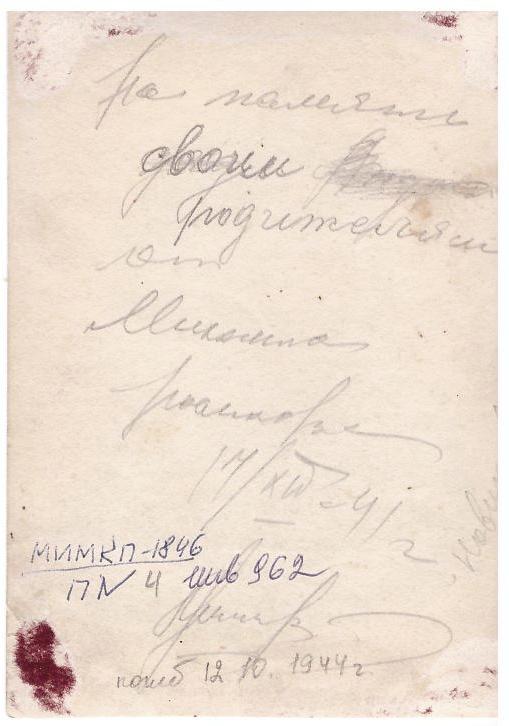 На памяти
своим
родителям
от
Михаила
17/XII-41
г
МИМКП-1846
ПN 4 инв 962
погиб 12 10. 1944 г